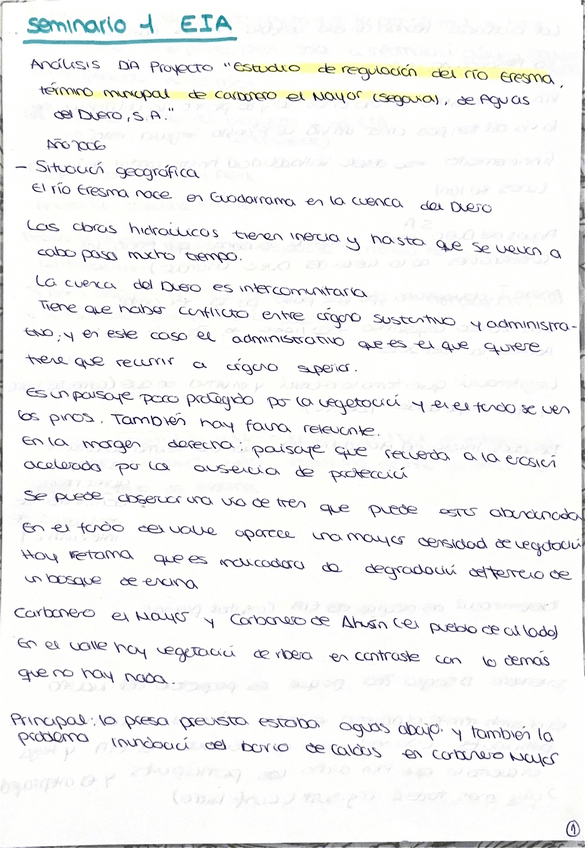 seminario 1 EIA
Análisis DA Proyecto "Estudio de regulación del río Eresma,
término municipal de Carbonero el Mayor (Segovia), de Aguas
del Duero, S.A."
Año 2006
- Situación geográfica
El río Eresma nace en Guadarrama en la cuenca del Duero
Las obras hidráulicas tienen inercia y hasta que se llevan a
cabo pasa mucho tiempo.
La cuenca del Duero es intercomunitaria
Tiene que haber conflicto entre órgano sustantivo, y administra-
tivo, y en este caso el administrativo que es el que quiere
tiene que recurrir a órgano superior.
Es un paisaje poco protegido por la vegetación y en el fondo se ven
los pinos. También hay fauna relevante.
En la margen derecha paisaje que recuerda a la erosión
acelerada por la ausencia de protección
Se puede observar una vía de tren que puede estar abandonada
En el fondo del valle aparece una mayor densidad de vegetación
Hay retama que es indicadora de degradación del terreno de
un bosque de encina
Carbonero el Mayor y Carbonero de Ahusín (el pueblo de al lado)
En el valle hay vegetación de ribera en contraste con lo demás
que no hay nada.
Principal: la presa prevista estaba aguas abajo y también la
problema inundación del barrio de Caldas en Carbonero Mayor
1